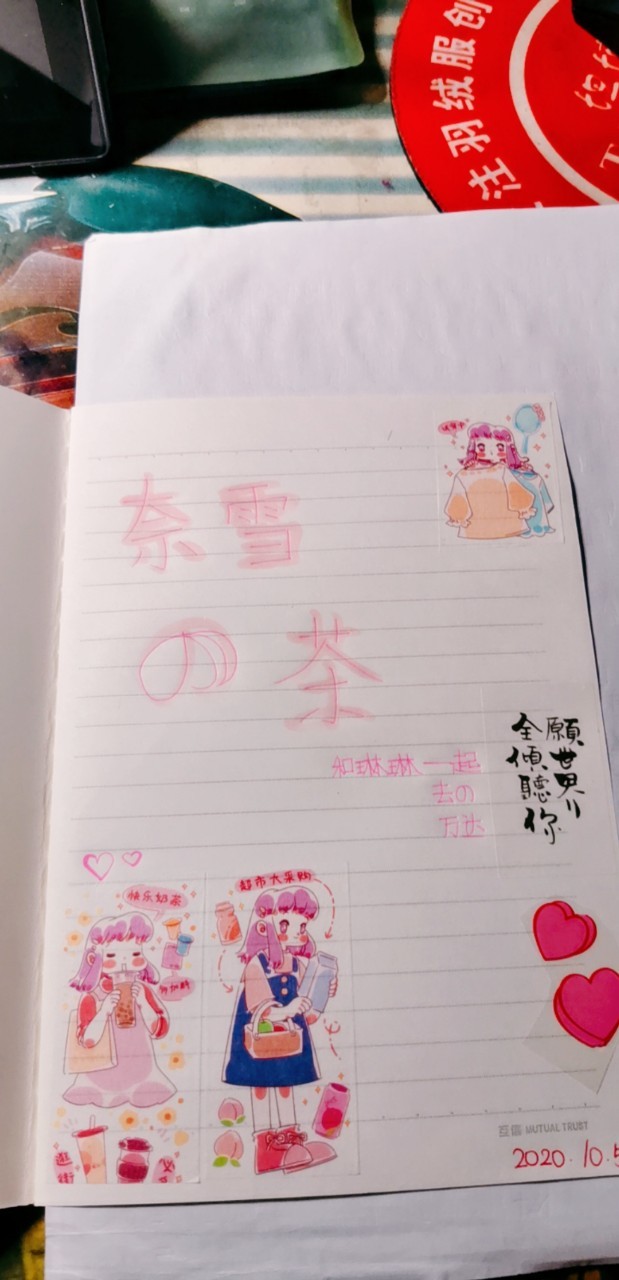 注羽绒服创
奈雪
の茶
和琳琳一起
去の
万达
願世界
全傾聽你
快乐奶茶
超市大采购
逛
街
互信 MUTUAL TRUST
2020.10.5